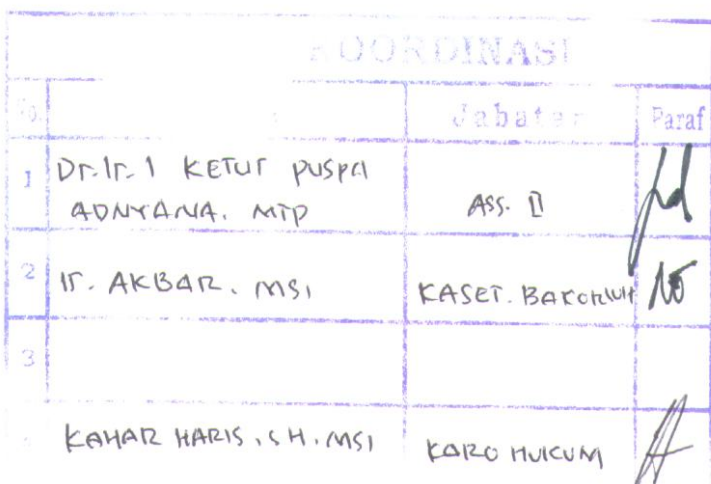 KOORDINASI
No. Jabatan Paraf
1 Dr. Ir. I KETUT PUSPA
ADNYANA. MTP ASS. II
2 Ir. AKBAR. MSI KASET. BAKORLUH
3
KAHAR HARIS, SH. MSI KARO HUKUM